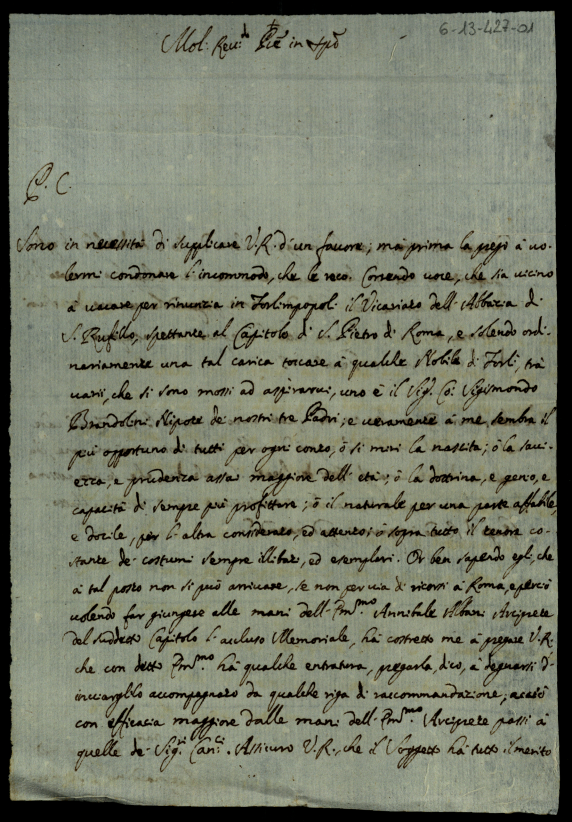 6-13-427-01
Mol: Rev:d P:re in Xpo
P. C.
Sono in necessità di supplicare V. R. d'un favore; mà prima la prego à vo-
lermi condonare l'incommodo, che le reco. Correndo voce, che sia vicino
à vacare per rinunzia in Forlimpopoli il Vicariato dell'Abbazia di
S. Rufillo, spettante al Capitolo di S. Pietro di Roma, e solendo ordi-
nariamente una tal carica toccare à qualche Nobile di Forlì, trà
varii, che si sono mossi ad aspirarvi, uno è il Sig. Co: Sigismondo
Brandolini Nipote de nostri tre Padri; e veramente à me sembra il
più opportuno di tutti per ogni conto, ò si miri la nascita; ò la savi-
ezza, e prudenza assai maggiore dell'età; ò la dottrina, e genio, e
capacità di sempre più profittare; ò il naturale per una parte affabile,
e docile, per l'altra considerato, ed attento; ò sopra tutto il tenore co-
stante de costumi sempre illibati, ed esemplari. Or ben sapendo egli, che
à tal posto non si può arrivare, se non per via di ricorsi à Roma, e perciò
volendo far giungere alle mani dell'Em:mo Annibale Albani Arciprete
del suddetto Capitolo l'accluso Memoriale, hà costretto me à pregare V. R.
che con detto Em:mo hà qualche entratura, pregarla, dico, à degnarsi d'
inviarglilo accompagnato da qualche riga di raccommandazione; acciò
con efficacia maggiore dalle mani dell'Em:mo Arciprete passi à
quelle de Sig:ri Can:ci. Assicuro V. R., che il Soggetto hà tutto il merito